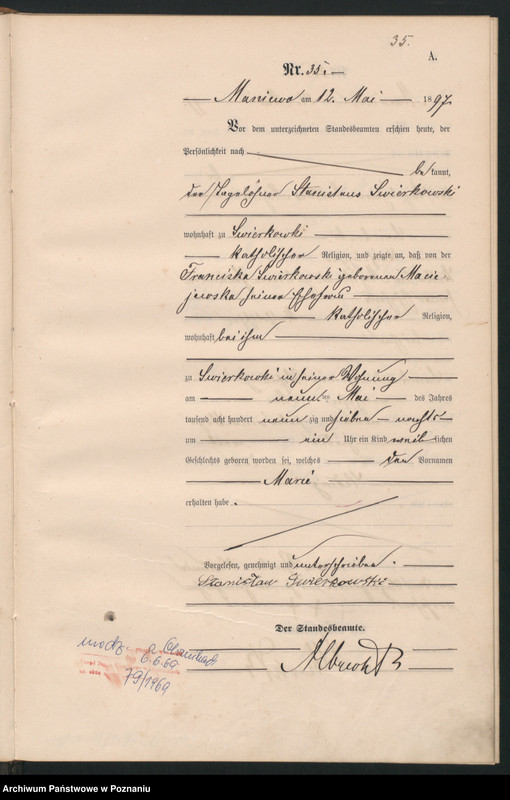 35.
A.
Nr. 35.
Maniewo am 12. Mai 1897
Vor dem unterzeichneten Standesbeamten erschien heute, der
Persönlichkeit nach
bekannt,
der Tagelöhner Stanislaus Swierkowski
wohnhaft zu Swierkowki
katholischer Religion, und zeigte an, daß von der
Franciska Swierkowski geborenen Macie-
jewska seiner Ehefrau
katholischer Religion,
wohnhaft bei ihm
zu Swierkowki in seiner Wohnung
am neun ten Mai des Jahres
tausend acht hundert neun zig und sieben nachts
um ein Uhr ein Kind weiblichen
Geschlechts geboren worden sei, welches den Vornamen
Marie
erhalten habe.
Vorgelesen, genehmigt und unterschrieben.
Stanisław Swierkowski
Der Standesbeamte.
Albrecht
6.6.69
79/1969
Archiwum Państwowe w Poznaniu